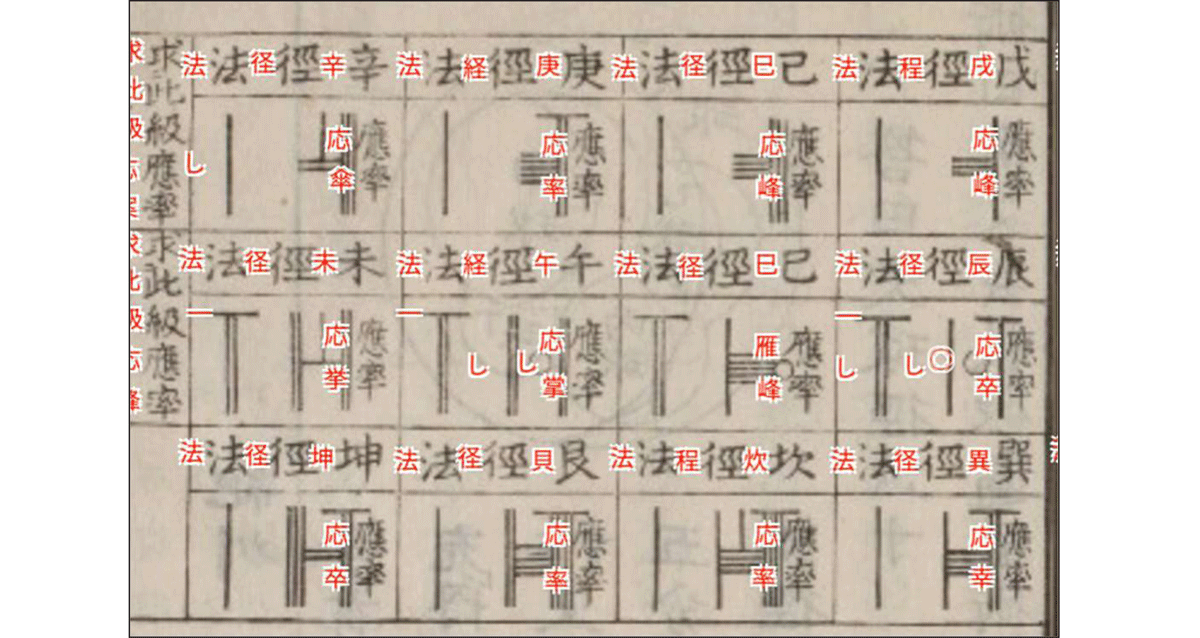 戊徑法
戌程法
應率
応峰
己徑法
巳径法
應率
応峰
庚徑法
庚経法
應率
応率
辛徑法
辛径法
應率
応傘
し
求此級應率
辰徑法
辰径法
應率
応卒
◎
し
一
し
己徑法
巳径法
應率
雁峰
午徑法
午経法
應率
応掌
し
し
一
未徑法
未径法
應率
応挙
一
求此級應率
巽徑法
異径法
應率
応幸
坎徑法
炊程法
應率
応率
艮徑法
貝径法
應率
応率
坤徑法
坤径法
應率
応卒